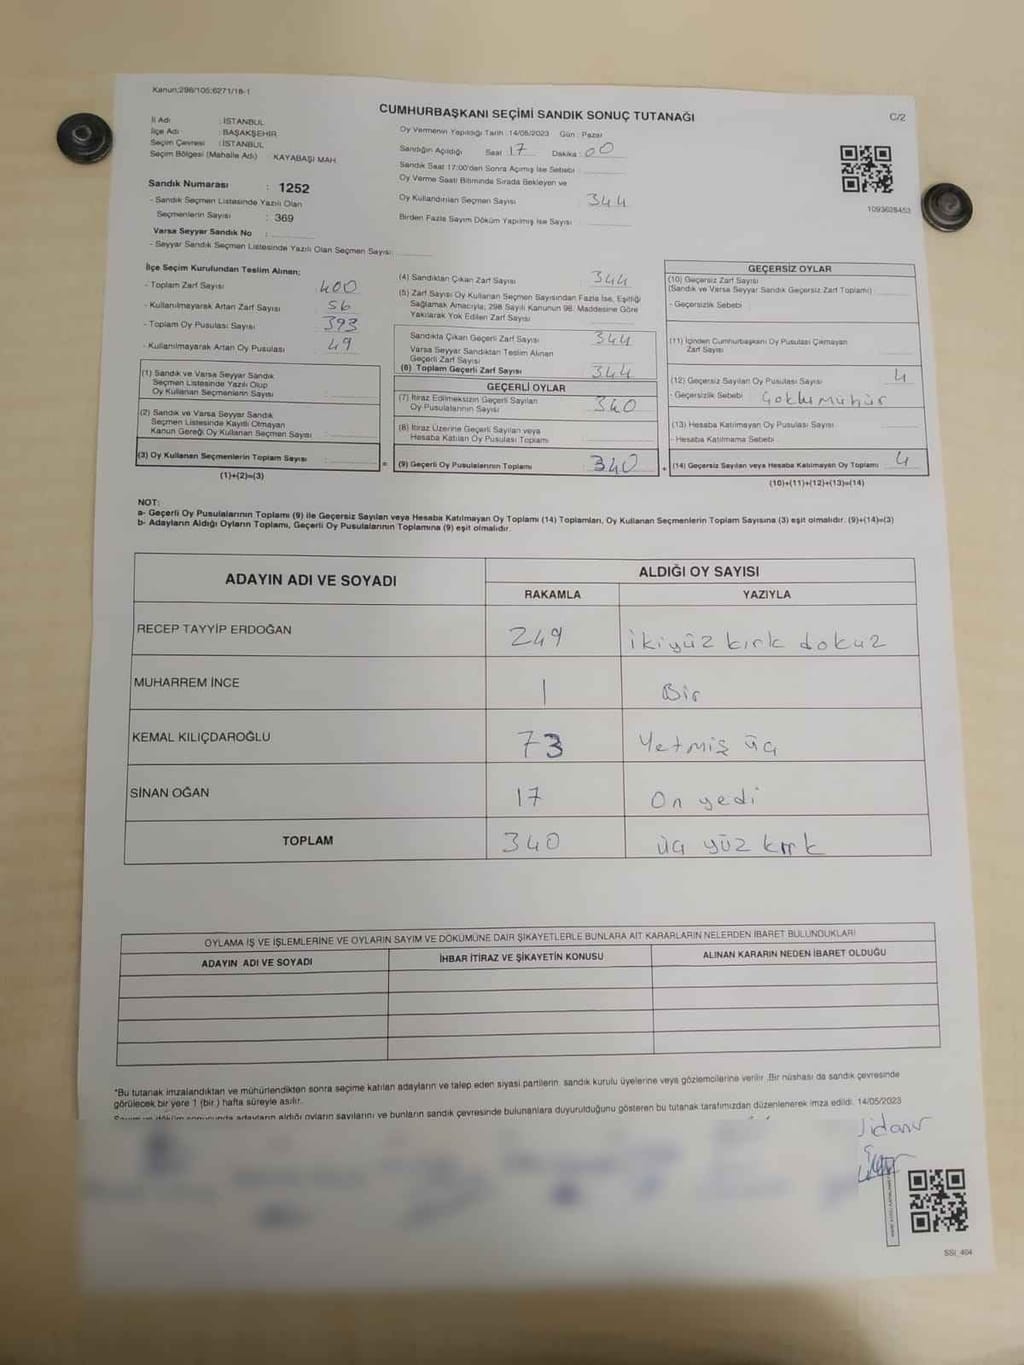 Kanun;298/105;6271/18-1
CUMHURBAŞKANI SEÇİMİ SANDIK SONUÇ TUTANAĞI
C/2
İl Adı : İSTANBUL
İlçe Adı : BAŞAKŞEHİR
Seçim Çevresi : İSTANBUL
Seçim Bölgesi (Mahalle Adı) KAYABAŞI MAH.
Sandık Numarası : 1252
- Sandık Seçmen Listesinde Yazılı Olan
Seçmenlerin Sayısı : 369
Varsa Seyyar Sandık No :
- Seyyar Sandık Seçmen Listesinde Yazılı Olan Seçmen Sayısı:
Oy Vermenin Yapıldığı Tarih :14/05/2023 Gün : Pazar
Sandığın Açıldığı Saat 17 Dakika : 00
Sandık Saat 17:00'den Sonra Açılmış İse Sebebi :
Oy Verme Saati Bitiminde Sırada Bekleyen ve
Oy Kullandırılan Seçmen Sayısı 344
Birden Fazla Sayım Döküm Yapılmış İse Sayısı :
1093628453
İlçe Seçim Kurulundan Teslim Alınan;
- Toplam Zarf Sayısı : 400
- Kullanılmayarak Artan Zarf Sayısı : 56
- Toplam Oy Pusulası Sayısı : 393
- Kullanılmayarak Artan Oy Pusulası : 49
(1) Sandık ve Varsa Seyyar Sandık
Seçmen Listesinde Yazılı Olup
Oy Kullanan Seçmenlerin Sayısı :
(2) Sandık ve Varsa Seyyar Sandık
Seçmen Listesinde Kayıtlı Olmayan
Kanun Gereği Oy Kullanan Seçmen Sayısı :
(3) Oy Kullanan Seçmenlerin Toplam Sayısı :
(1)+(2)=(3)
(4) Sandıktan Çıkan Zarf Sayısı 344
(5) Zarf Sayısı Oy Kullanan Seçmen Sayısından Fazla İse, Eşitliği
Sağlamak Amacıyla; 298 Sayılı Kanunun 98. Maddesine Göre
Yakılarak Yok Edilen Zarf Sayısı
Sandıkta Çıkan Geçerli Zarf Sayısı 344
Varsa Seyyar Sandıktan Teslim Alınan
Geçerli Zarf Sayısı
(6) Toplam Geçerli Zarf Sayısı 344
GEÇERLİ OYLAR
(7) İtiraz Edilmeksizin Geçerli Sayılan
Oy Pusulalarının Sayısı 340
(8) İtiraz Üzerine Geçerli Sayılan veya
Hesaba Katılan Oy Pusulası Toplamı
= (9) Geçerli Oy Pusulalarının Toplamı 340
GEÇERSİZ OYLAR
(10) Geçersiz Zarf Sayısı
(Sandık ve Varsa Seyyar Sandık Geçersiz Zarf Toplamı)
- Geçersizlik Sebebi :
(11) İçinden Cumhurbaşkanı Oy Pusulası Çıkmayan
Zarf Sayısı
(12) Geçersiz Sayılan Oy Pusulası Sayısı 4
- Geçersizlik Sebebi : Çoklu mühür
(13) Hesaba Katılmayan Oy Pusulası Sayısı
- Hesaba Katılmama Sebebi :
+ (14) Geçersiz Sayılan veya Hesaba Katılmayan Oy Toplamı 4
(10)+(11)+(12)+(13)=(14)
NOT:
a- Geçerli Oy Pusulalarının Toplamı (9) ile Geçersiz Sayılan veya Hesaba Katılmayan Oy Toplamı (14) Toplamları, Oy Kullanan Seçmenlerin Toplam Sayısına (3) eşit olmalıdır. (9)+(14)=(3)
b- Adayların Aldığı Oyların Toplamı, Geçerli Oy Pusulalarının Toplamına (9) eşit olmalıdır.
ADAYIN ADI VE SOYADI
ALDIĞI OY SAYISI
RAKAMLA YAZIYLA
RECEP TAYYİP ERDOĞAN 249 ikiyüz kırk dokuz
MUHARREM İNCE 1 Bir
KEMAL KILIÇDAROĞLU 73 Yetmiş üç
SİNAN OĞAN 17 On yedi
TOPLAM 340 üç yüz kırk
OYLAMA İŞ VE İŞLEMLERİNE VE OYLARIN SAYIM VE DÖKÜMÜNE DAİR ŞİKAYETLERLE BUNLARA AİT KARARLARIN NELERDEN İBARET BULUNDUKLARI
ADAYIN ADI VE SOYADI İHBAR İTİRAZ VE ŞİKAYETİN KONUSU ALINAN KARARIN NEDEN İBARET OLDUĞU
*Bu tutanak imzalandıktan ve mühürlendikten sonra seçime katılan adayların ve talep eden siyasi partilerin, sandık kurulu üyelerine veya gözlemcilerine verilir .Bir nüshası da sandık çevresinde
görülecek bir yere 1 (bir ) hafta süreyle asılır.
Sayım ve döküm sonucunda adayların aldığı oyların sayılarını ve bunların sandık çevresinde bulunanlara duyurulduğunu gösteren bu tutanak tarafımızdan düzenlenerek imza edildi. 14/05/2023
SSI_404